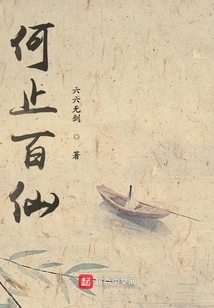 何止百仙
六六无剑 ◎ 著
起点中文网